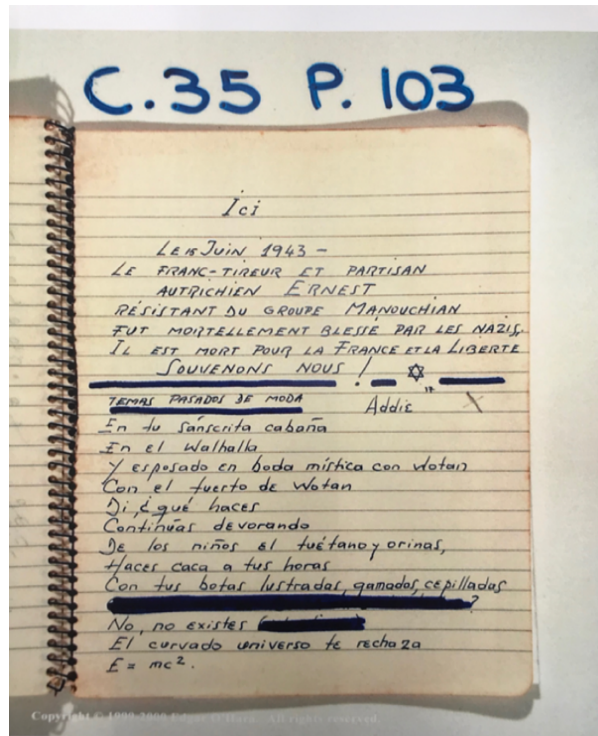 C.35 P. 103
Ici
LE 15 JUIN 1943 –
LE FRANC-TIREUR ET PARTISAN
AUTRICHIEN ERNEST
RÉSISTANT DU GROUPE MANOUCHIAN
FUT MORTELLEMENT BLESSÉ PAR LES NAZIS.
IL EST MORT POUR LA FRANCE ET LA LIBERTE
SOUVENONS NOUS !
TEMAS PASADOS DE MODA Addie
En tu sánscrita cabaña
En el Walhalla
Y esposado en boda mística con Wotan
Con el tuerto de Wotan
Di, ¿qué haces
Continúas devorando
De los niños el tuétano y orinas,
Haces caca a tus horas
Con tus botas lustradas, gamadas, cepilladas
?
No, no existes
El curvado universo te rechaza
E = mc².
Copyright © 1999-2000 Edgar O'Hara. All rights reserved